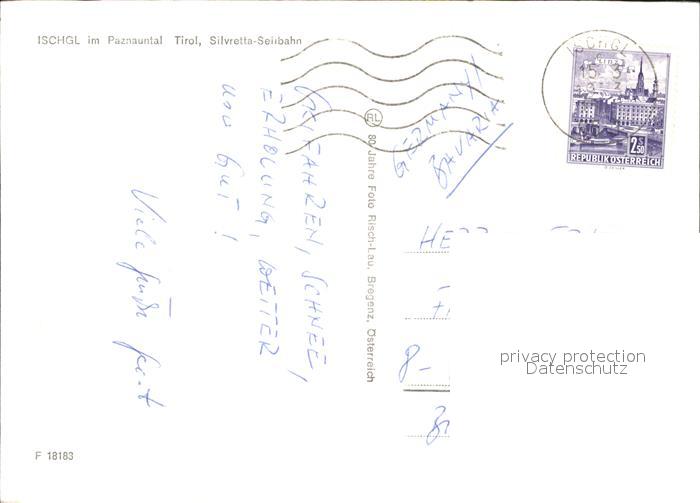 ISCHGL im Paznauntal Tirol, Silvretta-Seilbahn
SKIFAHREN, SCHNEE,
ERHOLUNG, WETTER
UND GUT!
Viele Grüße
RL
80 Jahre Foto Risch-Lau, Bregenz, Österreich
GERMANY
BAVARIA
ISCHGL
15. 3.
2.50
REPUBLIK ÖSTERREICH
HE
8-
privacy protection
Datenschutz
F 18183